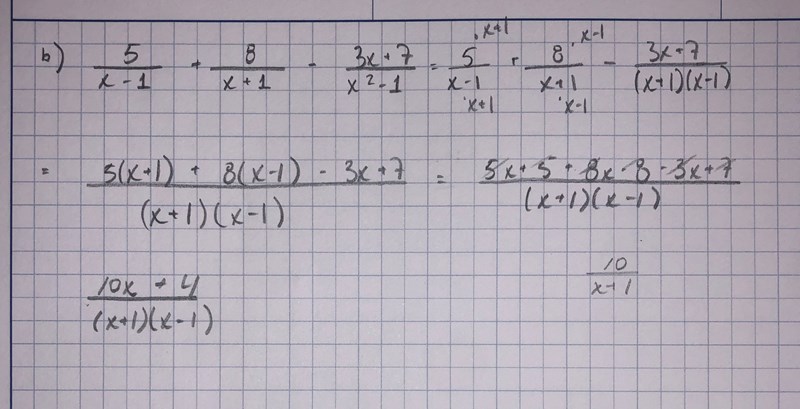 b) 5/(x-1) + 8/(x+1) - (3x+7)/(x²-1) = (5 ·x+1)/(x-1 ·x+1) + (8 ·x-1)/(x+1 ·x-1) - (3x+7)/((x+1)(x-1))
= (5(x+1) + 8(x-1) - 3x+7)/((x+1)(x-1)) = (5x+5+8x-8-3x+7)/((x+1)(x-1))
(10x+4)/((x+1)(x-1))
10/(x+1)